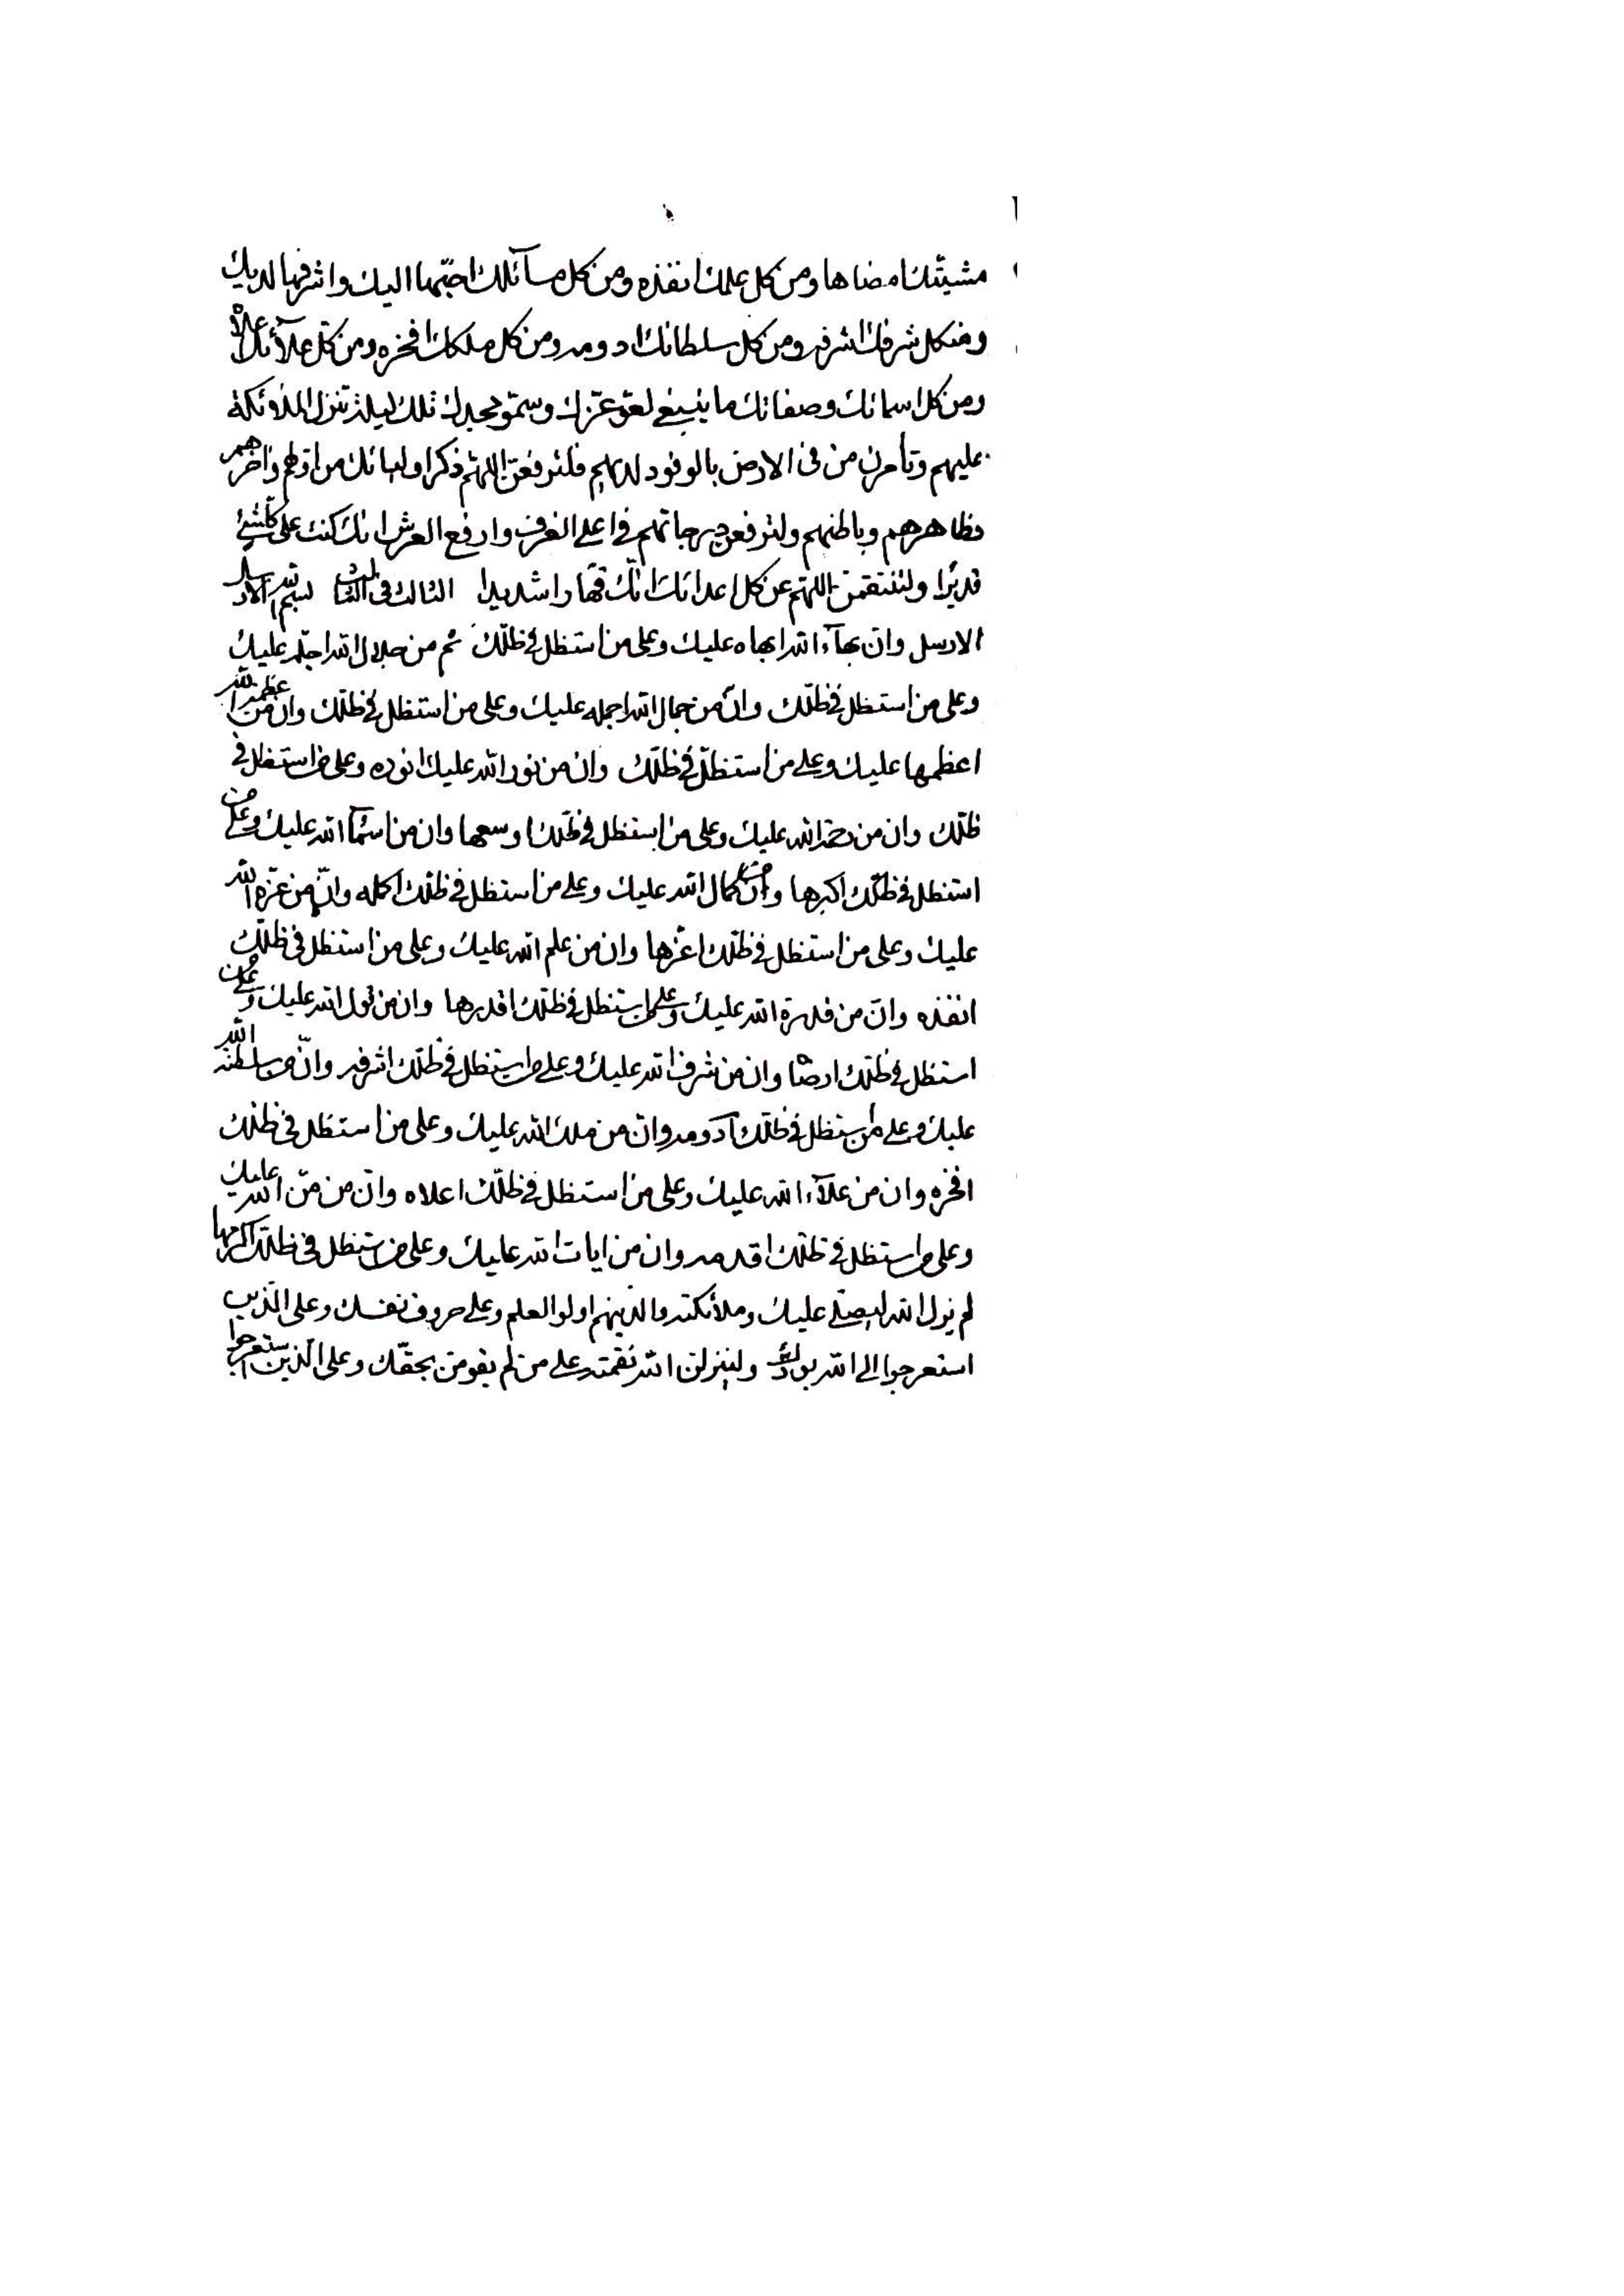 مشيتك امضاها ومن كل علمك انفذه ومن كل مسآئلك احبّها اليك واشرفها لديك
ومن كل شرفك اشرفه ومن كل سلطانك ادومه ومن كل ملكك افخره ومن كل علآئك اعلاه
ومن كل اسمائك وصفاتك ما ينبغي لعلو عزك وسمو مجدك تلك ليلة تنزل الملائكة
عليهم وتأمرن من في الارض بالوفود لديهم فلترفعن اللهم ذكر اوليائك من اولهم واخرهم
وظاهرهم وباطنهم ولترفعن درجاتهم في اعلى الغرف وارفع العرش انك كنت على كلشئ
قديرا ولتنتقمن اللهم عن كل اعدائك انك قهارا شديدا الثالث في الثالث بسم الله الارسل
الارسل وان بهآء الله ابهاه عليك وعلى من استظل في ظلك ثم من جلال الله اجله عليك
وعلى من استظل في ظلك وانّ من جمال الله اجمله عليك وعلى من استظل في ظلك وان من عظمة الله
اعظمها عليك وعلى من استظل في ظلك وان من نور الله عليك انوره وعلى من استظل في
ظلك وان من رحمة الله عليك وعلى من استظل في ظلك اوسعها وان من اسمآء الله عليك وعلى من
استظل في ظلك اكبرها وان من كمال الله عليك وعلى من استظل في ظلك اكمله وانّ من عزة الله
عليك وعلى من استظل في ظلك اعزها وان من علم الله عليك وعلى من استظل في ظلك
انفذه وان من قدرة الله عليك وعلى من استظل في ظلك اقدرها وان من قول الله عليك وعلى من
استظل في ظلك ارضاه وان من شرف الله عليك وعلى من استظل في ظلك اشرفه وانّ من سلطنة الله
عليك وعلى من استظل في ظلك ادومه وان من ملك الله عليك وعلى من استظل في ظلك
افخره وان من علآء الله عليك وعلى من استظل في ظلك اعلاه وان من منّ الله عليك
وعلى من استظل في ظلك اقدمه وان من ايات الله عليك وعلى من استظل في ظلك اكرمها
لم يزل الله ليصلي عليك وملائكته والذينهم اولوا العلم وعلى حروف نفسك وعلى الذين
استعرجوا الى الله بولائك ولينزلن الله نقمته على من لم يقومن بحقك وعلى الذين استعرجوا